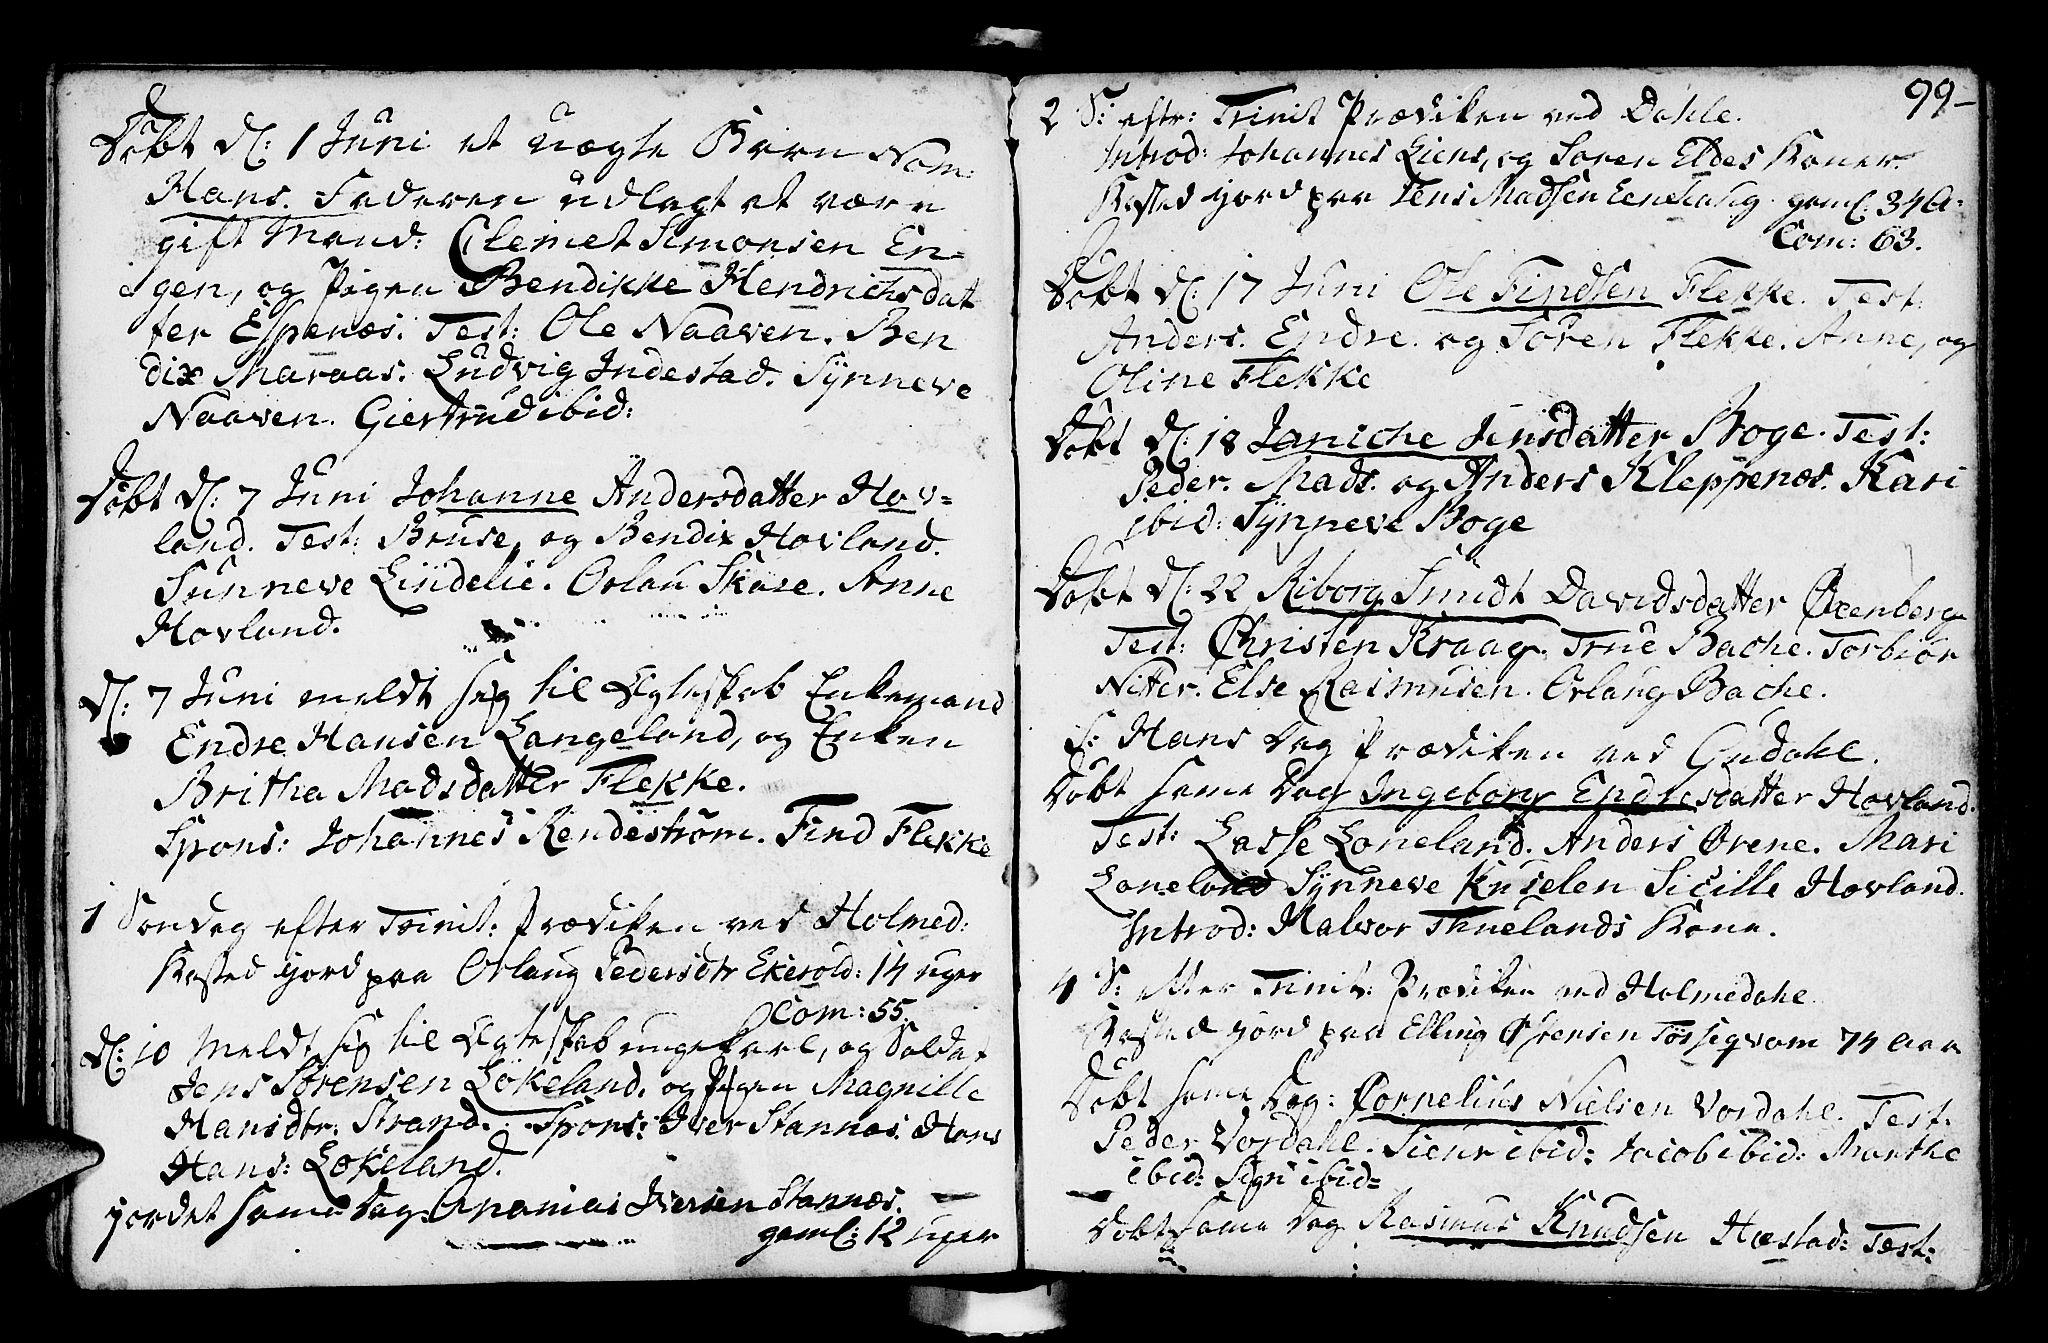 Døbt d: 1 Juni et uægte Barn Nom:
Hans. Faderen udlagt at være
gift Mand: Clemet Simonsen En-
gen, og Pigen Bendikke Hendrichsdat
ter Espenæs. Test: Ole Naaven. Ben
dix Maraas. Ludvig Indestad. Synneve
Naaven. Giertrud ibid:
Døbt d: 7 Juni Johanne Andersdatter Hov-
land. Test: Bruse, og Bendix Hovland.
Sunneve Lindelie. Orlau Skare. Anne
Hovland.
d: 7 Juni meldt sig til Ægteskab Enkemand
Endre Hansen Langeland, og Enken
Britha Madsdatter Flekke.
Spons: Johannes Rendestrøm. Find Flekke
1 Søndag efter Trinit: Prædiken ved Holmed:
Kasted jord paa Orlaug Pedersdtr Ekerold: 14 uger
Com: 55.
d: 10 Meldt sig til Ægteskab ungekarl, og Soldat
Jens Sørensen Løkeland, og Pigen Magnille
Hansdtr: Strand. Spons: Iver Stannæs. Hans
Hans: Løkeland.
jordet samme Dag. Ananias Iversen Stannæs.
gaml: 12 uger
99-
2 S: eftr: Trinit Prædiken ved Dahle.
Introd: Johannes Liens, og Søren Eldes Koner.
Kasted jord paa Jens Madsen Eenehaug gaml: 34 A:
Com: 63.
Døbt d: 17 Juni Ole Findsen Flekke. Test:
Anders. Endre. og Søren Flekke. Anne, og
Oline Flekke
Døbt d: 18 Janiche Jensdatter Boge. Test:
Peder. Mads. og Anders Kleppenæs. Kari
ibid: Synneve Boge
Døbt d: 22 Riborg Smidt Davidsdatter Øxenberg
Test: Christen Kraag. True Bache. Torbiør
Nitter. Else Rasmusen. Orlaug Bache.
S: Hans Dag Prædiken ved Gudahl.
Døbt samme Dag Ingeborg Endresdatter Hovland.
Test: Lasse Loneland. Anders Ørene. Mari
Loneland Synneve Knuelen Sicille Hovland.
Introd: Halvor Thuelands Kone.
4 S: efter Trinit: Prædiken ved Holmedahl
Kasted jord paa Elling Østensen Tøssegvam 74 Aar
Døbt samme Dag: Cornelius Nielsen Vordahl. Test:
Peder Vordahl. Siur ibid: Jacob ibid: Marthe
ibid: Sigri ibid=
Døbt samme Dag Rasmus Knudsen Hæstad: Test: